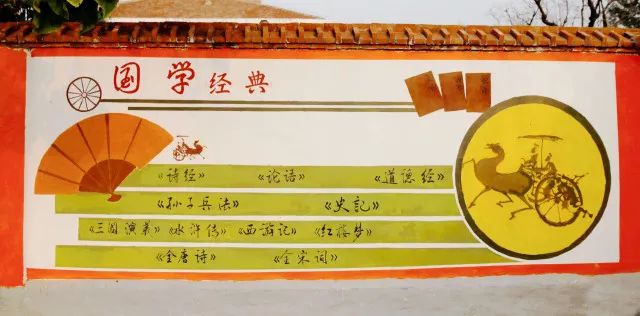 国学经典
《诗经》 《论语》 《道德经》
《孙子兵法》 《史記》
《三国演义》《水浒传》《西游记》《红楼梦》
《全唐诗》 《全宋词》